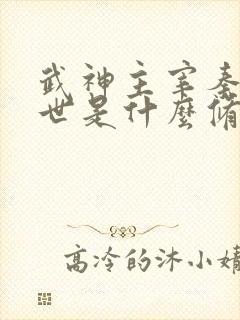 武神主宰秦
世是什麼脩
高冷的沐小婧